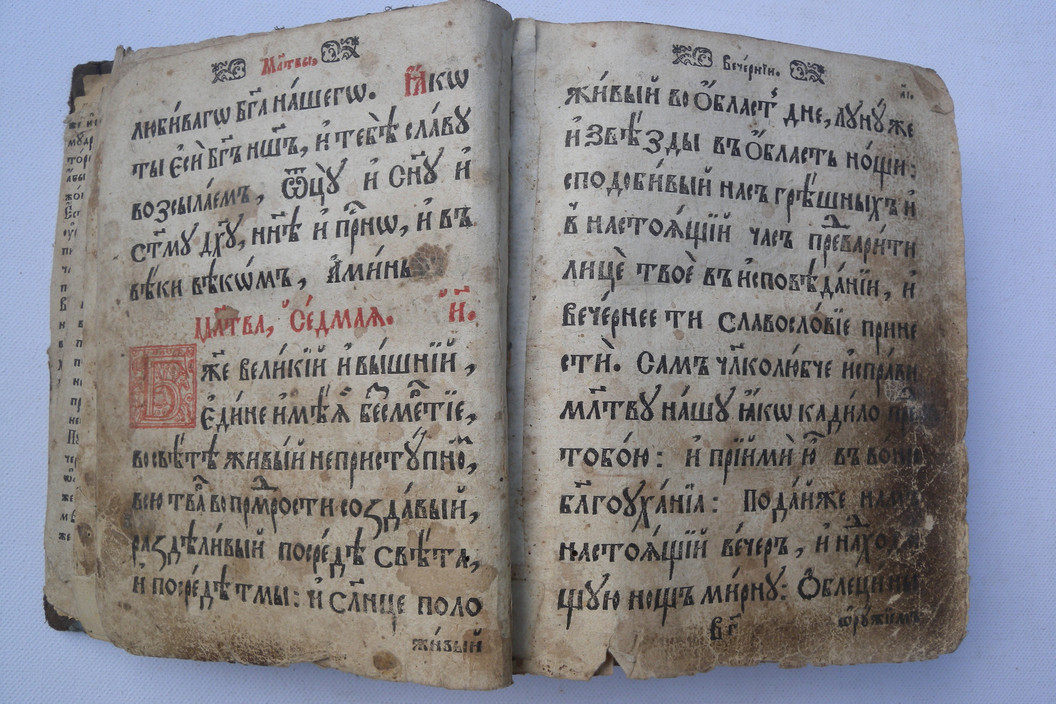 Мл҃твы.
люби́вагѡ бг҃а на́шегѡ. Ꙗ҆́кѡ
ты є҆сѝ бг҃ъ нш҃ъ, и҆ тебѣ̀ сла́ву
возсыла́емъ, ѿц҃ꙋ и҆ сн҃ꙋ и҆
ст҃му дх҃ꙋ, нн҃ѣ и҆ при́снѡ, и҆ въ
вѣ́ки вѣкѡ́мъ, а҆ми́нь
мл҃тва, Се́дмаѧ. 
Бж҃е вели́кїй и҆ вы́шнїй,
є҆ди́не и҆мѣ́ѧ бесме́ртїе,
во свѣ́тѣ живы́й непристу́пнѡ,
всю̀ тва́рь во прм҃рости созда́вый,
раздѣли́вый посре́дѣ свѣ́та,
и҆ посре́дѣ тмы̀: и҆ сл҃нце поло
жи́вый
Вече́рнїи.
жи́вый во ѻ҆́бласть дне, лꙋнꙋ́ же
и҆ ѕвѣ́зды въ ѻ҆́бласть но́щи:
сподоби́вый насъ грѣ́шныхъ и҆
в настоѧ́щїй часъ превари́ти
лицѐ твоѐ въ и҆сповѣ́данїи, и҆
вече́рнее ти славосло́вїе прине
сти̏. Самъ чл҃колю́бче и҆спра́ви
мл҃твꙋ на́шꙋ ꙗ҆́кѡ кади́ло
тобо́ю: и҆ прїимѝ ю҆̀ въ воню̀
бл҃гоꙋха́нїа: Пода́йже намъ
настоѧ́щїй вечеръ, и҆ нахо
щꙋю нощъ ми́рнꙋ: Ѻ҆блецы̀ ны
в҃і